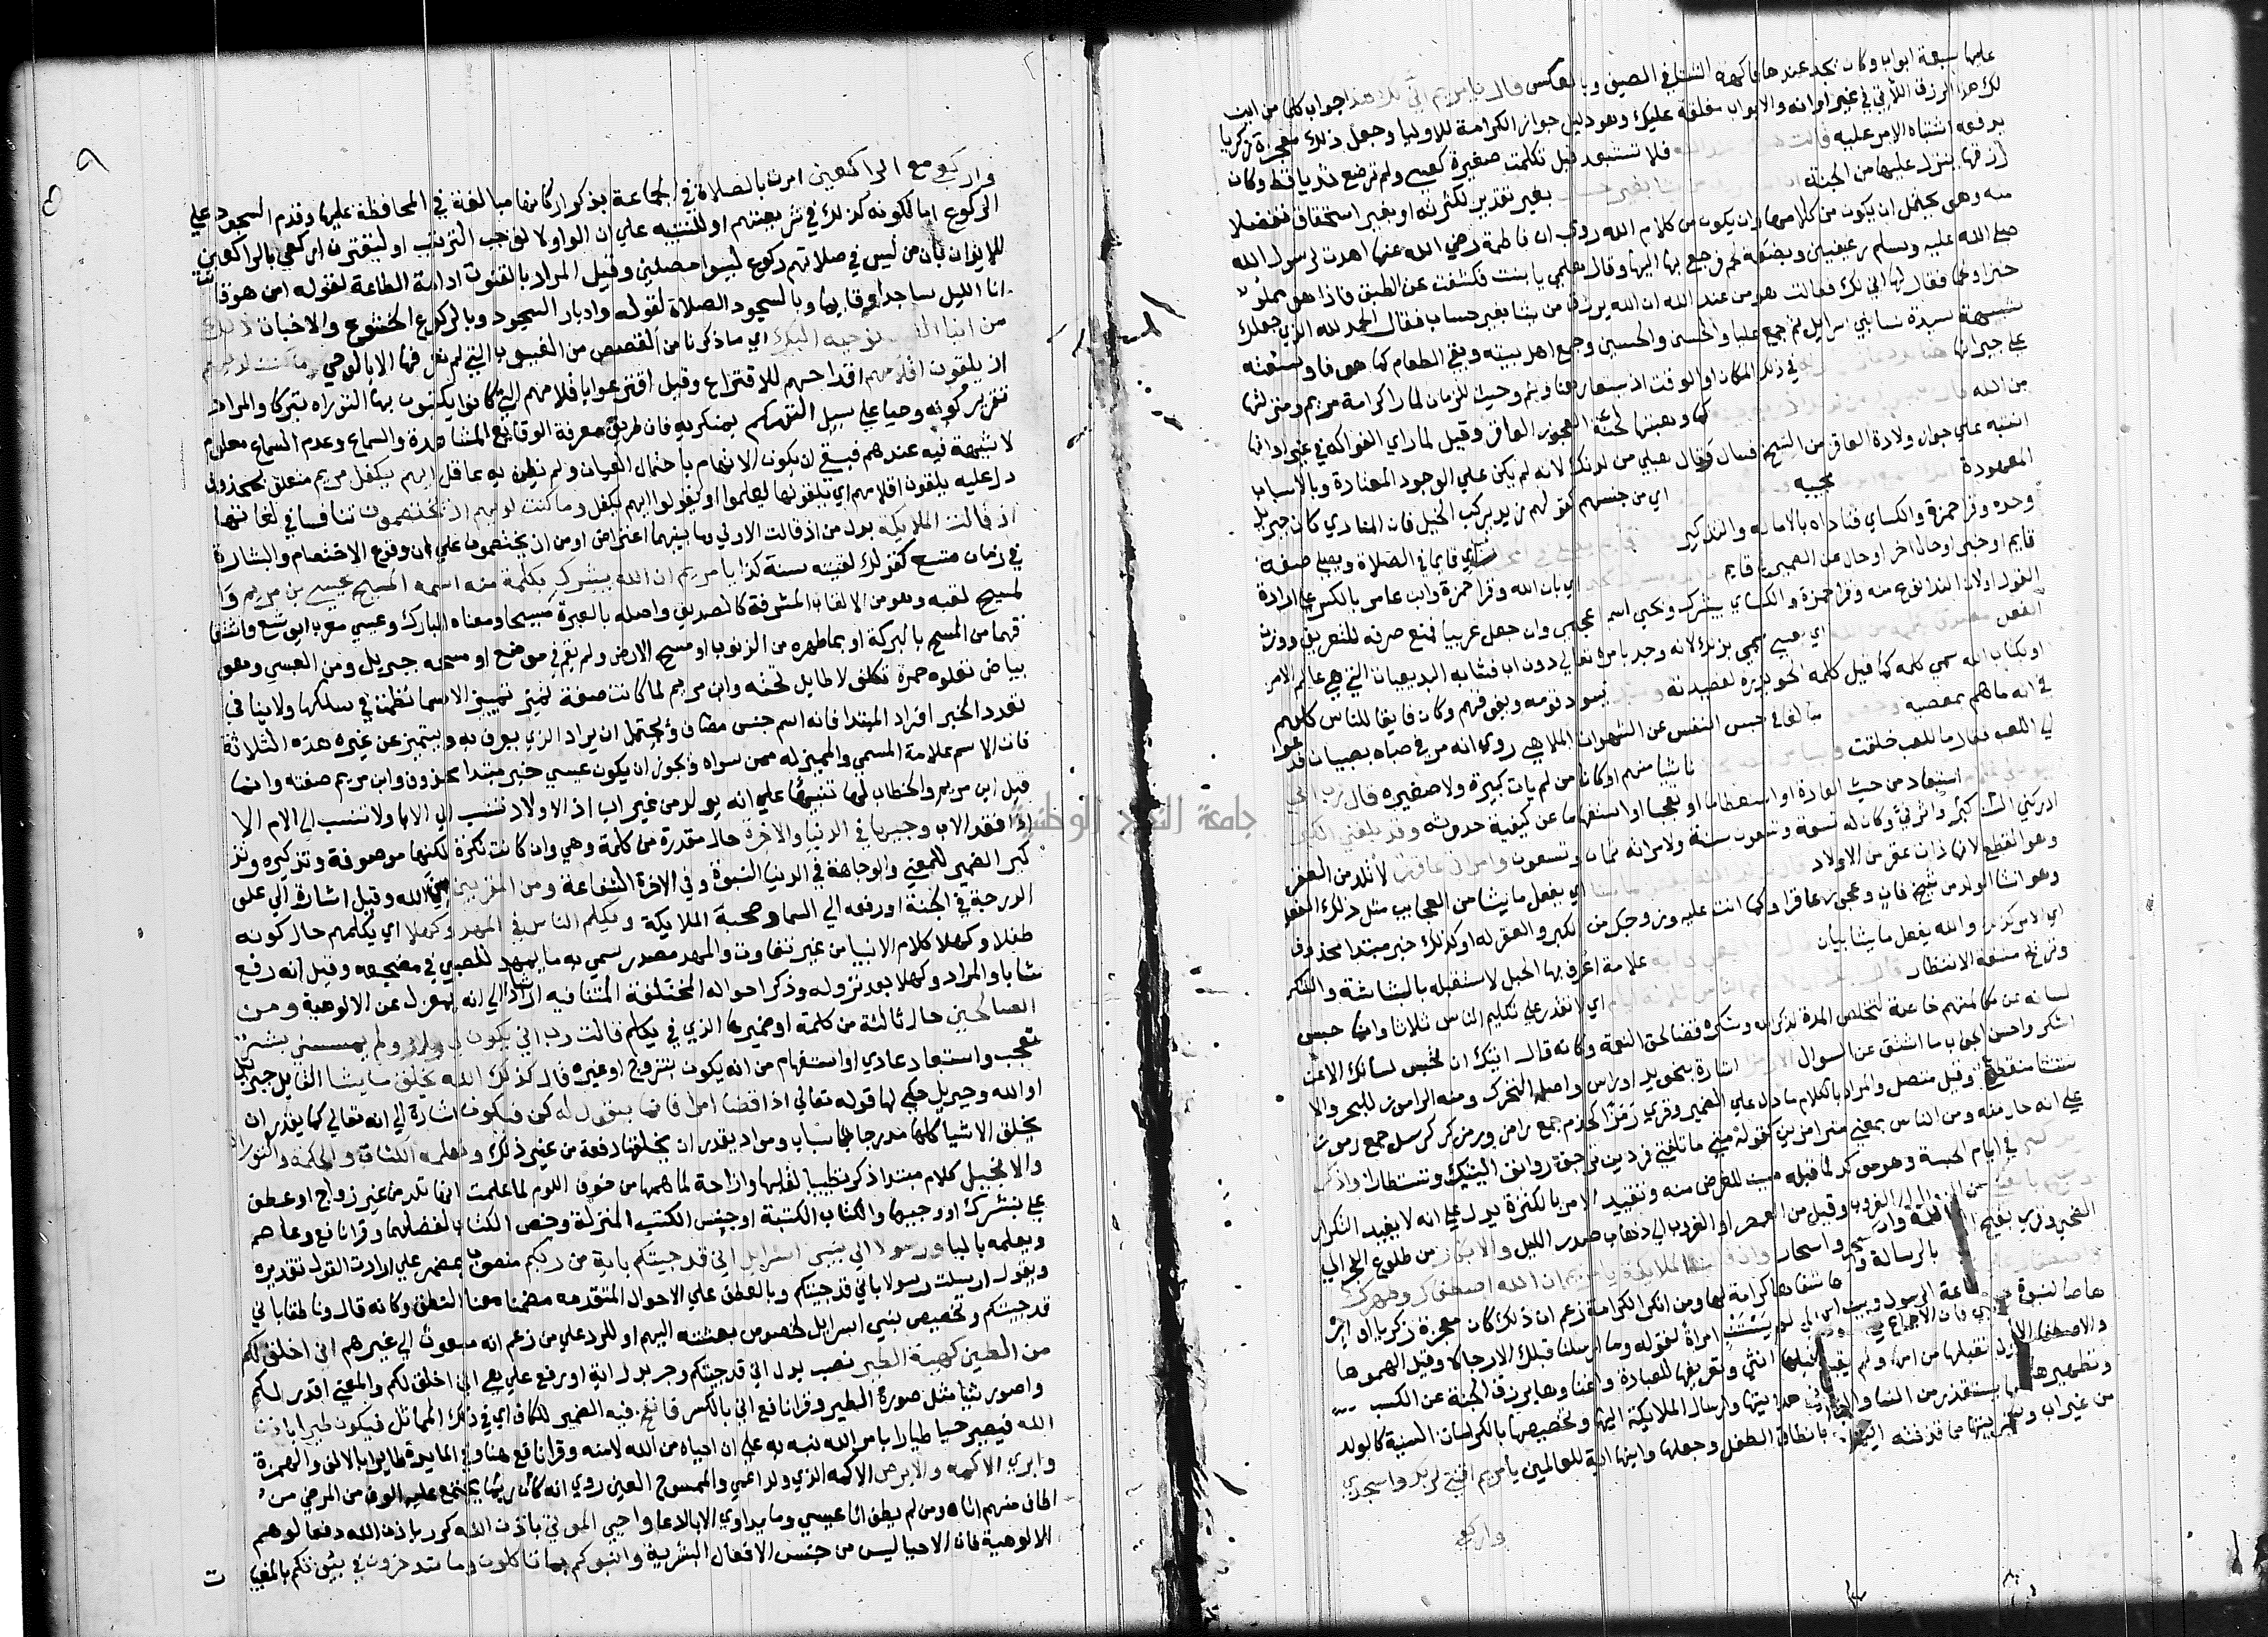 عليها سبعة ابواب وكان يجد عندها فاكهة الشتا في الصيف وبالعكس قال يا مريم انى لك هذا جواب كلما من اين
لك هذا الرزق الآتي في غير اوانه والابواب مغلقة عليك وهو دليل جواز الكرامة للاوليا وجعل ذلك معجزة زكريا
يدفعه اشتباه الامر عليه قالت هو من عند الله فلا تستبعد قيل تكلمت صغيرة كعيسى ولم ترضع ثديا قط وكان
رزقها ينزل عليها من الجنة بغير حساب بغير تقدير لكثرته او بغير استحقاق تفضلا
منه وهو يحتمل ان يكون من كلامهما وان يكون من كلام الله روي ان فاطمة رضي الله عنها اهدت لرسول الله
صلى الله عليه وسلم رغيفين وبضعة لحم فرجع بها اليها وقال هلمي يا بنت فكشفت عن الطبق فاذا هو مملو
خبزا ولحما فقال لها انى لك فقالت هو من عند الله ان الله يرزق من يشا بغير حساب فقال الحمد لله الذي جعلك
شبيهة سيدة نسا بني اسرايل ثم جمع عليا والحسن والحسين وجمع اهل بيته وبقي الطعام كما هو فاوسعته
على جيرانها في ذلك المكان او الوقت اذ يستعار هنا وثم وحيث للزمان لما راى كرامة مريم ومنزلتها
من الله كما وهبتها لحنة العجوز العاقر وقيل لما راى الفواكه في غير اوانها
انتبه على جواز ولادة العاقر من الشيخ فسال وقال هب لي من لدنك لانه لم يكن على الوجود المعتادة وبالاسباب
المعهودة مجيبه اي من جنسهم كقولهم زيد يركب الخيل فان المنادي كان جبريل
وحده وقرا حمزة والكساي فناداه بالامالة والتذكير اي قايما في الصلاة ويصلي صفة
قايم او خبر او حال اخر او حال عن الضمير في قايم اي بان الله وقرا حمزة وابن عامر بالكسر على ارادة
القول او لان الندا نوع منه وقرا حمزة والكساي يبشرك ويحيى اسم اعجمي وان جعل عربيا فمنع صرفه للتعريف ووزن
الفعل اي بعيسى سمي بذلك لانه وجد بامره تعالى دون اب فشابه البديعيات التي هي عالم الامر
او بكتاب الله سمي كلمة كما قيل كلمة الحويدرة لقصيدته وسيدا يسود قومه ويفوقهم وكان فايقا للناس كلهم
في انه ما هم بمعصية مبالغا في حبس النفس عن الشهوات والملاهي روي انه مر في صباه بصبيان فدعوه
الى اللعب فقال ما للعب خلقت ناشيا منهم او كاينا من لم يات كبيرة ولا صغيرة قال رب انى
استبعاد من حيث العادة او استعظاما او تعجبا او استفهاما عن كيفية حدوثه وقد بلغني الكبر
ادركني السن كبر واثر في وكان له تسعة وتسعون سنة ولامراته ثمان وتسعون وامراتي عاقر لا تلد من العقر
وهو القطع لانها ذات عقر من الاولاد اي يفعل ما يشا من العجايب مثل ذلك الفعل
وهو انشا الولد من شيخ فان وعجوز عاقر او كما انت عليه وزوجك من الكبر والعقر له او كذلك خبر مبتدا محذوف
اي الامر كذلك والله يفعل ما يشا بيان علامة اعرف بها الحبل لاستقبله بالبشاشة والشكر
وتزيح مشقة الانتظار اي لا تقدر على تكليم الناس ثلاثا وانما حبس
لسانه عن مكالمتهم خاصة لتخلص المدة لذكر الله وشكره قضا لحق النعمة وكانه قال ايتك ان تحبس لسانك الا عن
الشكر واحسن الجواب ما اشتق عن السوال اشارة بنحو يد او راس واصله التحرك ومنه الراموز للبحر والا
ستثنا منقطع وقيل متصل والمراد بالكلام ما دل على الضمير وقرى رمزا كخدم جمع رامز ورمز كرسل جمع رموز
على انه حال منه ومن الناس بمعنى مترامزين كقوله متى ما تلقني فردين ترجف روانف اليتيك وتستطارا واذكر
في ايام الحبسة وهو موكد لما قبله مبين للغرض منه وتقييد الامر بالكثرة يدل على انه لا يفيد التكرار
من الزوال الى الغروب وقيل من العصر او الغروب الى ذهاب صدر الليل والابكار من طلوع الفجر الى
الضحى وقرى بفتح سحر واسحار واذ قالت الملايكة يا مريم ان الله اصطفاك وطهرك
شفاها كرامة لها ومن انكر الكرامة زعم ان ذلك كان معجزة زكريا او ارها
صا لنبوة عيسى فان الاجماع على لم يستنبئ امراة لقوله وما ارسلنا قبلك الا رجالا وقيل الهموها
والاصطفا الاول تقبلها من امها ولم يقبل قبلها انثى وتفريغها للعبادة واغناوها برزق الجنة عن الكسب
وتطهيرها يستقذر من النسا والثاني هدايتها وارسال الملايكة اليها وتخصيصها بالكرامات السنية كالولد
من غير اب وتبريتها مما قذفته اليهود بانطاق الطفل وجعلها وابنها اية للعالمين يا مريم اقنتي لربك واسجدي
واركعي
واركعي مع الراكعين امرت بالصلاة في الجماعة بذكر اركانها مبالغة في المحافظة عليها وقدم السجود على
الركوع اما لكونه كذلك في شريعتهم او للتنبيه على ان الواو لا توجب الترتيب او ليقترن اركعي بالراكعين
للايذان بان من ليس في صلاتهم ركوع ليسوا مصلين وقيل المراد بالقنوت ادامة الطاعة لقوله امن هو قانت
انا الليل ساجدا وقايما وبالسجود الصلاة لقوله وادبار السجود وبالركوع الخشوع والاخبات ذلك
من انبا الغيب نوحيه اليك اي ما ذكرنا من القصص من الغيوب التي لم تعرفها الا بالوحي وما كنت لديهم
اذ يلقون اقلامهم اقداحهم للاقتراع وقيل اقترعوا باقلامهم التي كانوا يكتبون بها التوراه تبركا والمراد
تقرير كونه وحيا على سبيل التهكم بمنكريه فان طريق معرفة الوقايع المشاهدة والسماع وعدم السماع معلوم
لا شبهة فيه عندهم فبقي ان يكون الاتهام باحتمال العيان ولم يظن به عاقل ايهم يكفل مريم متعلق بمحذوف
دل عليه يلقون اقلامهم اي يلقونها ليعلموا او ليقولوا ايهم يكفل وما كنت لديهم اذ يختصمون تنافسا في كفالتها
اذ قالت الملايكه بدل من اذ قالت الاولى وما بينهما اعتراض او من اذ يختصمون على ان وقوع الاختصام والبشارة
في زمان متسع كقولك لقيته سنة كذا يا مريم ان الله يبشرك بكلمة منه اسمه المسيح عيسى بن مريم وا
لمسيح لقبه وهو من الالقاب المشرفة كالصديق واصله بالعبرية مسيحا ومعناه المبارك وعيسى معرب ايشوع واشتقا
قهما من المسح بالبركة او بما طهره من الذنوب او مسح الارض ولم يقم في موضع او مسحه جبريل ومن العيس وهو
بياض تعلوه حمرة تكلف لا طايل تحته وابن مريم لما كانت صفة تميز تمييز الاسما نظمت في سلكها ولا ينافي
تعدد الخبر افراد المبتدا فانه اسم جنس مضاف ويحتمل ان يراد الذي يعرف به ويتميز عن غيره هذه الثلاثة
فان الاسم علامة المسمى والمميز له ممن سواه ويجوز ان يكون عيسى خبر مبتدا محذوف وابن مريم صفته وانما
قيل ابن مريم والخطاب لها تنبيها على انه يولد من غير اب اذ الاولاد تنسب الى الابا ولا تنسب الى الام الا
اذا فقد الاب وجيها في الدنيا والاخرة حال مقدرة من كلمة وهي وان كانت نكرة لكنها موصوفة وتذكيره وتذ
كير الضمير للمعنى والوجاهة في الدنيا النبوة وفي الاخرة الشفاعة ومن المقربين من الله وقيل اشارة الى على
الدرجة في الجنة او رفعه الى السما وصحبة الملايكة ويكلم الناس في المهد وكهلا اي يكلمهم حال كونه
طفلا وكهلا كلام الانبيا من غير تفاوت والمهد مصدر سمي به ما يمهد للصبي في مضجعه وقيل انه رفع
شابا والمراد وكهلا بعد نزوله وذكر احواله المختلفة المتنافية ارشاد الى انه بمعزل عن الالوهية ومن
الصالحين حال ثالثة من كلمة او ضميرها الذي في يكلم قالت رب انى يكون لي ولد ولم يمسسني بشر
تعجب واستبعاد عادي او استفهام من انه يكون بتزوج او غيره قال كذلك الله يخلق ما يشا القايل جبريل
او الله وجبريل حكى لها قوله تعالى اذا قضا امرا فانما يقول له كن فيكون اشارة الى انه تعالى كما يقدر ان
يخلق الاشيا كلها مدرجا باسباب ومواد يقدر ان يخلقها دفعة من غير ذلك ونعلمه الكتاب والحكمة والتوراة
والانجيل كلام مبتدا ذكر تطييبا لقلبها وازاحة لما همها من خوف اللوم لما علمت انها تلد من غير زواج او عطف
على يبشرك او وجيها والكتاب الكتبة او جنس الكتب المنزلة وخص الكتابان لفضلهما وقرا نافع وعاصم
ويعلمه باليا ورسولا الى بني اسرايل اني قد جيتكم باية من ربكم منصوب بمضمر على ارادت القول تقديره
ويقول ارسلت رسولا باني قد جيتكم وبالعطف على الاحوال المتقدمه مضمنا معنا النطق وكانه قال وناطقا باني
قد جيتكم وتخصيص بني اسرايل لخصوص بعثته اليهم او للرد على من زعم انه مبعوث الى غيرهم اني اخلق لكم
من الطين كهية الطير نصب بدل اني قد جيتكم وجر بدل اية او رفع على هي اني اخلق لكم والمعنى اقدر لكم
واصور شيا مثل صورة الطير وقرا نافع اني بالكسر فانفخ فيه الضمير للكاف اي في ذلك المماثل فيكون طيرا باذن
الله فيصير حيا طيارا بامر الله نبه به على ان احياه من الله لا منه وقرا نافع هنا وفي المايدة طايرا بالالف والهمزة
وابري الاكمه والابرص الاكمه الذي ولد اعمى والممسوح العين روي انه كان ربما يجتمع عليه الوف من المرضى من
اطاق منهم اتاه ومن لم يطق اتاه عيسى وما يداوي الا بالدعا واحيى الموتى باذن الله كرر باذن الله دفعا لوهم
الالوهية فان الاحيا ليس من جنس الافعال البشرية وانبوكم بما تاكلون وما تدخرون في بيوتكم بالمغيبا
ت
جامعة النجاح الوطنية